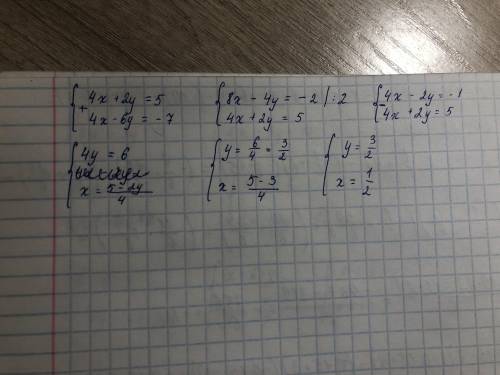 { 4x + 2y = 5
+ 4x - 6y = -7
{ 8x - 4y = -2 | :2
4x + 2y = 5
{ 4x - 2y = -1
- 4x + 2y = 5
{ 4y = 6
x = 5 - 2y / 4
{ y = 6/4 = 3/2
x = 5 - 3 / 4
{ y = 3/2
x = 1/2